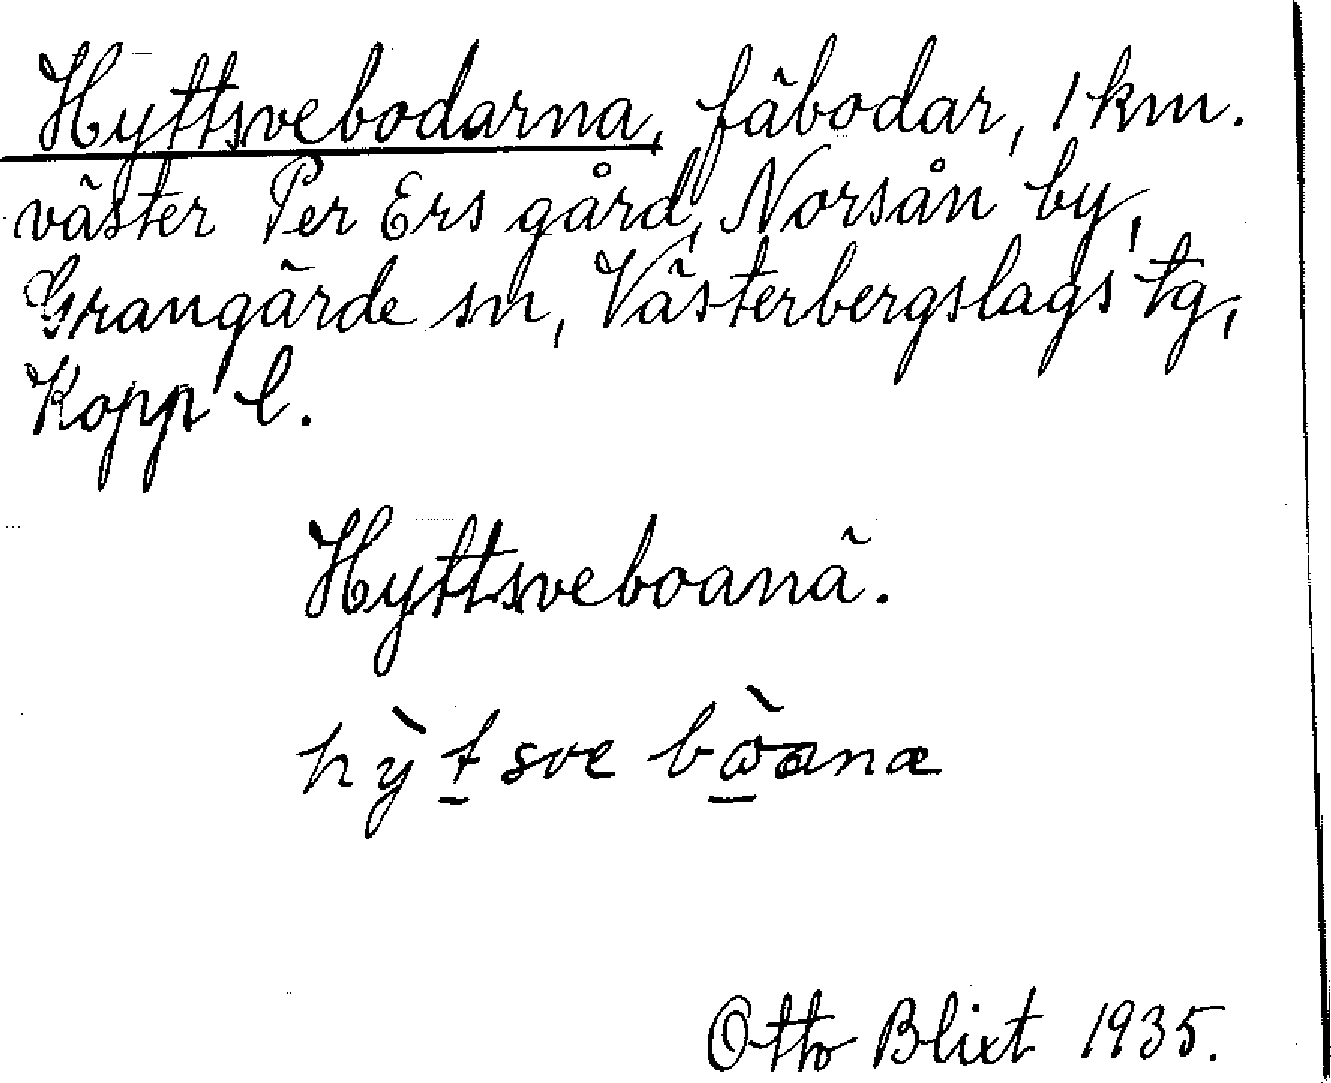 Hyttsvebodarna, fäbodar, 1 km.
väster Per Ers gård, Norsån by,
Grangärde sn, Västerbergslags tg,
Kopp l.
Hyttsveboanä.
hy̆̀t̠sve bὼ̠anæ
Otto Blixt 1935.